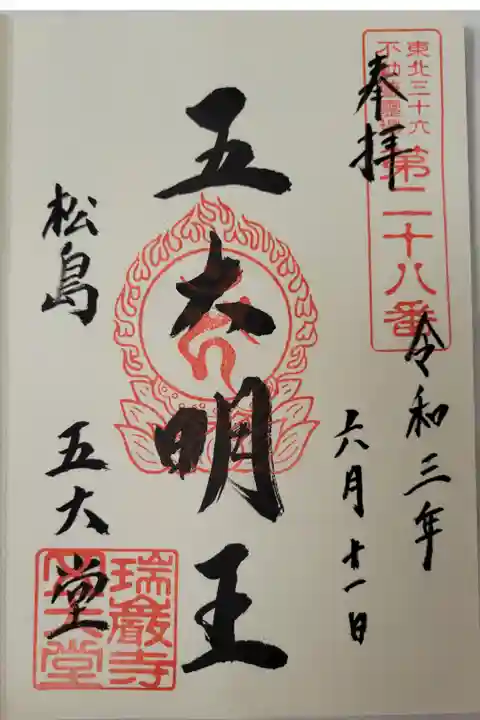 東北三十六
不動尊霊場
第二十八番
奉拝
令和三年
六月十一日
五大明王
松島 五大堂
瑞巌寺
五大堂